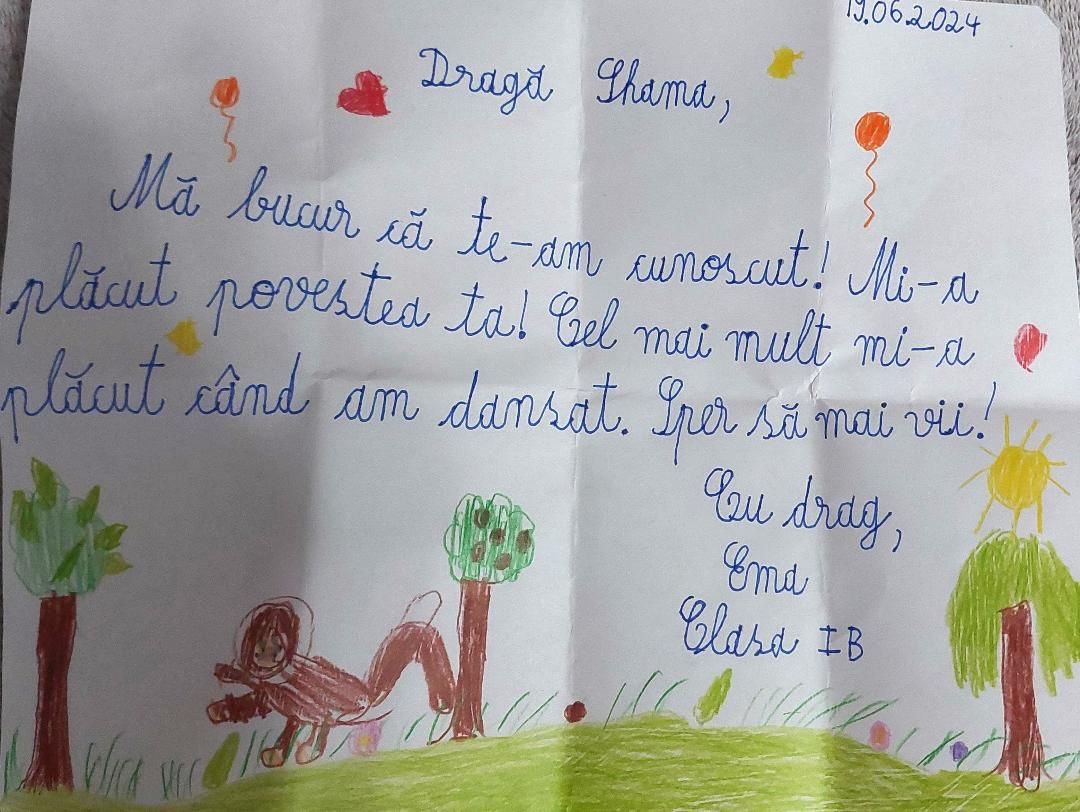 19.06.2024
Dragă Shama,
Mă bucur că te-am cunoscut! Mi-a
plăcut povestea ta! Cel mai mult mi-a
plăcut când am dansat. Sper să mai vii!
Cu drag,
Ema
Clasa I B